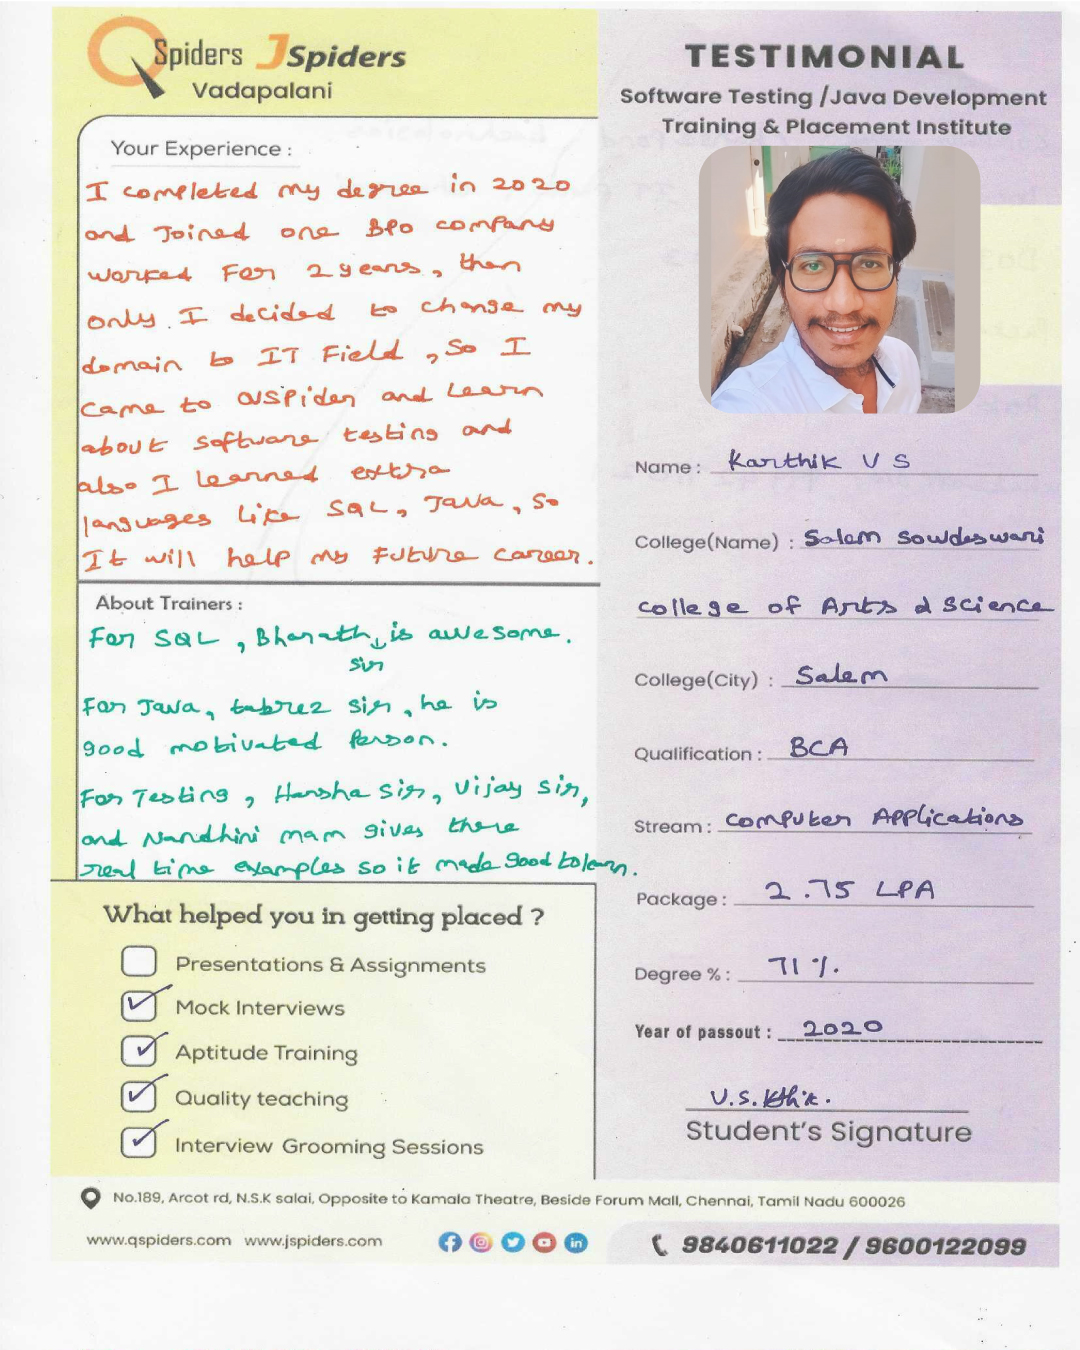 QSpiders JSpiders
Vadapalani
TESTIMONIAL
Software Testing /Java Development
Training & Placement Institute
Your Experience :
I completed my degree in 2020
and Joined one BPO company
worked For 2 years, then
only I decided to change my
domain to IT Field, So I
came to QSpider and Learn
about software testing and
also I learned extra
languages like SQL, Java, So
It will help my Future career.
About Trainers :
For SQL, Bharath sir is awesome.
For Java, tabrez sir, he is
good motivated Person.
For Testing, Harsha sir, Vijay sir,
and Nandhini mam gives there
real time examples so it made good to learn.
What helped you in getting placed ?
Presentations & Assignments
Mock Interviews
Aptitude Training
Quality teaching
Interview Grooming Sessions
Name : Karthik V S
College(Name) : Salem Sowdeswari
College of Arts & Science
College(City) : Salem
Qualification : BCA
Stream : Computer Applications
Package : 2.75 LPA
Degree % : 71 %.
Year of passout : 2020
Student's Signature
No.189, Arcot rd, N.S.K salai, Opposite to Kamala Theatre, Beside Forum Mall, Chennai, Tamil Nadu 600026
www.qspiders.com www.jspiders.com
9840611022 / 9600122099